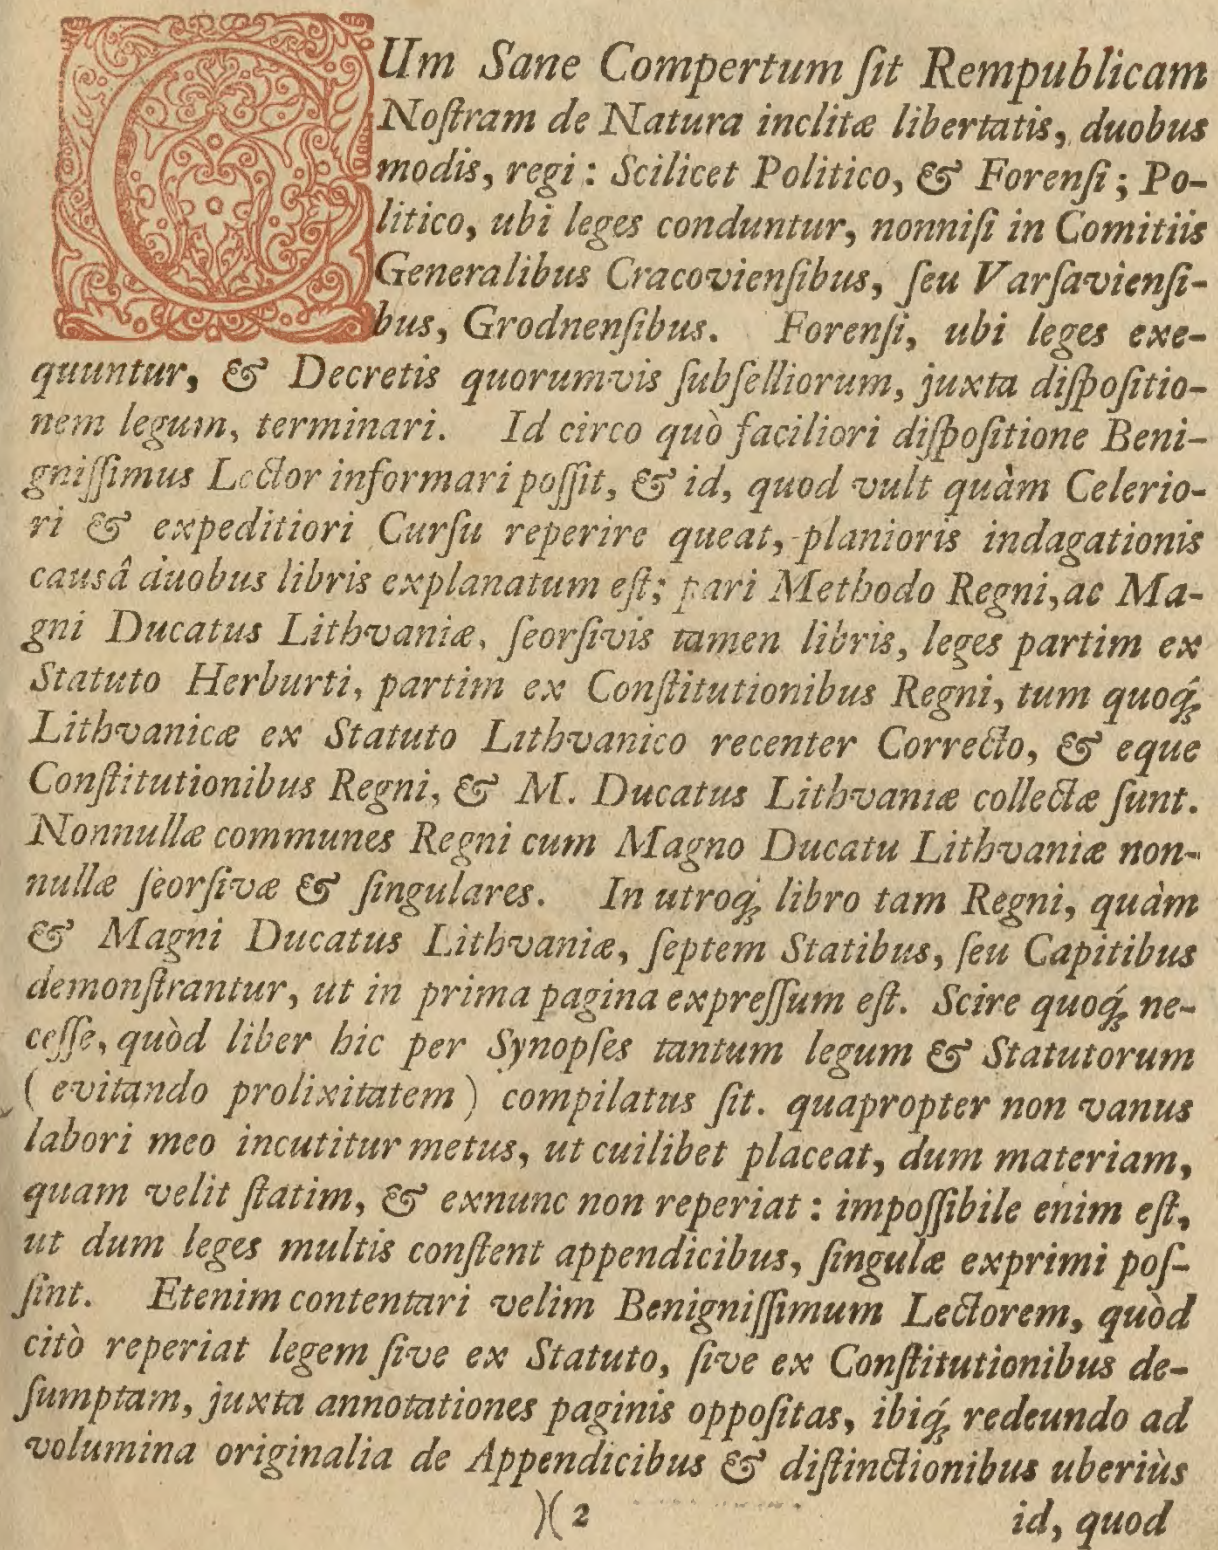 CUm Sane Compertum ſit Rempublicam
Noſtram de Natura inclitæ libertatis, duobus
modis, regi: Scilicet Politico, & Forenſi; Po-
litico, ubi leges conduntur, nonniſi in Comitiis
Generalibus Cracovienſibus, ſeu Varſavienſi-
bus, Grodnenſibus. Forenſi, ubi leges exe-
quuntur, & Decretis quorumvis ſubſelliorum, juxta diſpoſitio-
nem legum, terminari. Id circo quò faciliori diſpoſitione Beni-
gniſſimus Lector informari poſſit, & id, quod vult quàm Celerio-
ri & expeditiori Curſu reperire queat, planioris indagationis
causâ duobus libris explanatum eſt; pari Methodo Regni, ac Ma-
gni Ducatus Lithvaniæ, ſeorſivis tamen libris, leges partim ex
Statuto Herburti, partim ex Conſtitutionibus Regni, tum quoq́;
Lithvanicæ ex Statuto Lithvanico recenter Correcto, & eque
Conſtitutionibus Regni, & M. Ducatus Lithvaniæ collectæ ſunt.
Nonnullæ communes Regni cum Magno Ducatu Lithvaniæ non-
nullæ ſeorſivæ & ſingulares. In utroq́; libro tam Regni, quàm
& Magni Ducatus Lithvaniæ, ſeptem Statibus, ſeu Capitibus
demonſtrantur, ut in prima pagina expreſſum eſt. Scire quoq́; ne-
ceſſe, quòd liber hic per Synopſes tantum legum & Statutorum
(evitando prolixitatem) compilatus ſit. quapropter non vanus
labori meo incutitur metus, ut cuilibet placeat, dum materiam,
quam velit ſtatim, & exnunc non reperiat: impoſſibile enim eſt,
ut dum leges multis conſtent appendicibus, ſingulæ exprimi poſ-
ſint. Etenim contentari velim Benigniſſimum Lectorem, quòd
citò reperiat legem ſive ex Statuto, ſive ex Conſtitutionibus de-
ſumptam, juxta annotationes paginis oppoſitas, ibiq́; redeundo ad
volumina originalia de Appendicibus & diſtinctionibus uberiùs
)( 2 id, quod